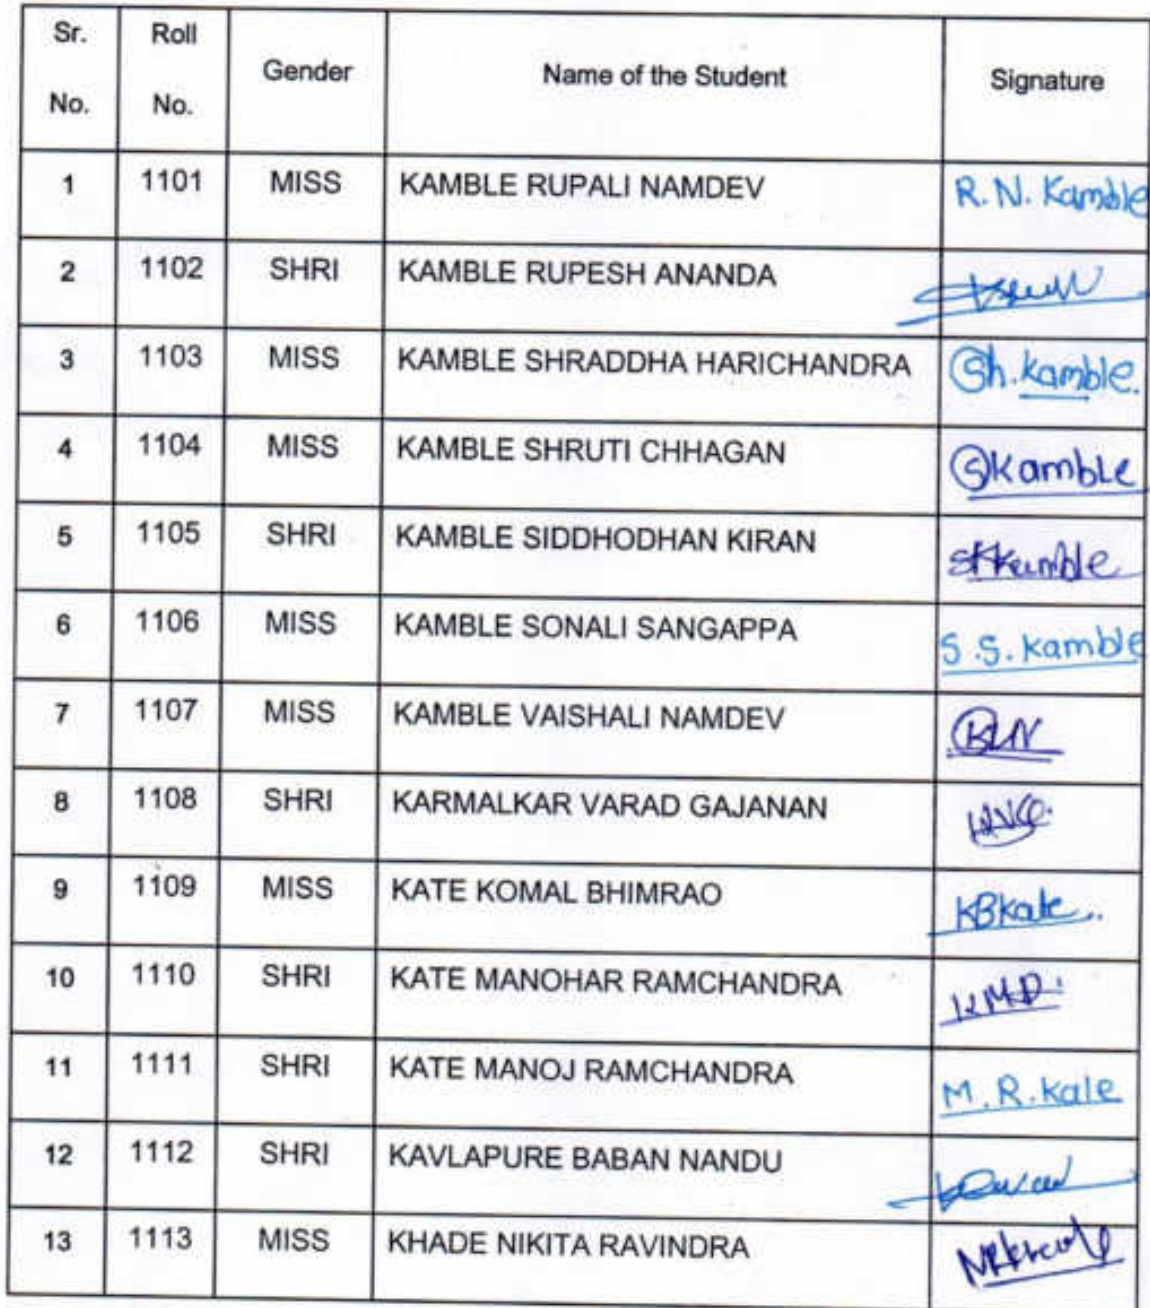 Sr. No. Roll No. Gender Name of the Student Signature
1 1101 MISS KAMBLE RUPALI NAMDEV R. N. Kamble
2 1102 SHRI KAMBLE RUPESH ANANDA
3 1103 MISS KAMBLE SHRADDHA HARICHANDRA Sh. Kamble.
4 1104 MISS KAMBLE SHRUTI CHHAGAN SKamble
5 1105 SHRI KAMBLE SIDDHODHAN KIRAN
6 1106 MISS KAMBLE SONALI SANGAPPA S.S. Kamble
7 1107 MISS KAMBLE VAISHALI NAMDEV
8 1108 SHRI KARMALKAR VARAD GAJANAN
9 1109 MISS KATE KOMAL BHIMRAO KBKate..
10 1110 SHRI KATE MANOHAR RAMCHANDRA
11 1111 SHRI KATE MANOJ RAMCHANDRA M.R.Kale
12 1112 SHRI KAVLAPURE BABAN NANDU
13 1113 MISS KHADE NIKITA RAVINDRA